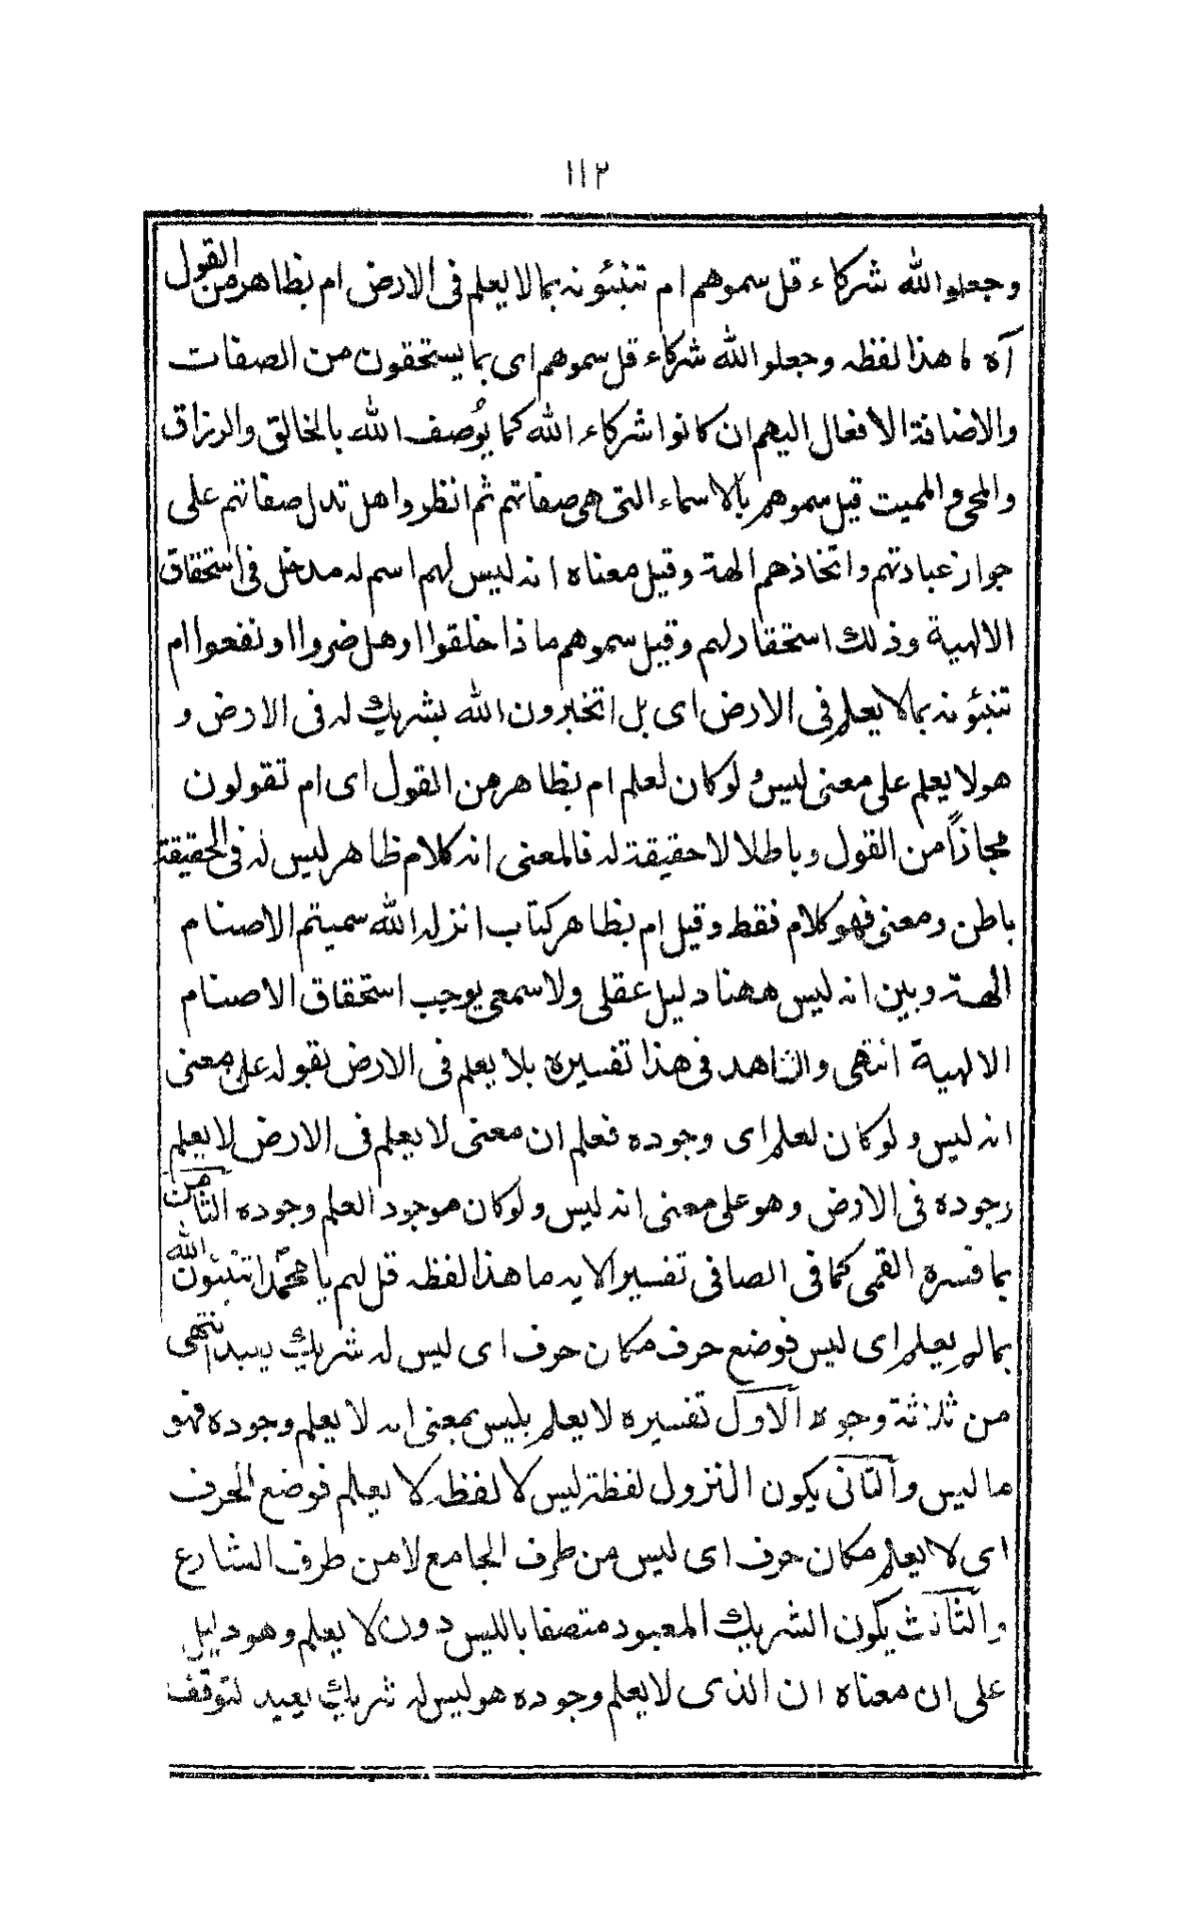 ١١٢
وجعلوا لله شركاء قل سموهم ام تنبئونه بما لا يعلم فى الارض ام بظاهر من القول
آه ما هذا لفظه وجعلوا لله شركاء قل سموهم اى بما يستحقون من الصفات
والاضافة الافعال اليهم ان كانوا شركاء لله كما يُوصف الله بالخالق والرزاق
والمحى والمميت قيل سموهم بالاسماء التى هى صفاتهم ثم انظروا هل تدل صفاتهم على
جواز عبادتهم واتخاذهم الهة وقيل معناه انه ليس لهم اسم له مدخل فى استحقاق
الالهية وذلك استحقار لهم وقيل سموهم ماذا خلقوا او هل ضروا او نفعوا ام
تنبئونه بما لا يعلم فى الارض اى بل اتخبرون الله بشريك له فى الارض و
هو لا يعلم على معنى ليس ولو كان لعلم ام بظاهر من القول اى ام تقولون
مجازاً من القول وباطلا لا حقيقة له فالمعنى انه كلام ظاهر ليس له فى الحقيقة
باطن ومعنى فهو كلام فقط وقيل ام بظاهر كتاب انزله الله سميتم الاصنام
الهة وبين انه ليس ههنا دليل عقلى ولا سمعى يوجب استحقاق الاصنام
الالهية انتهى والشاهد فى هذا تفسيره بلا يعلم فى الارض بقوله على معنى
انه ليس ولو كان لعلم اى وجوده فعلم ان معنى لا يعلم فى الارض لا يعلم
وجوده فى الارض وهو على معنى انه ليس ولو كان موجود العلم وجوده الثامن
بما فسره القمى كما فى الصافى تفسير الايه ما هذا لفظه قل لهم يا محمّد اتنبئون الله
بما لم يعلم اى ليس فوضع حرف مكان حرف اى ليس له شريك يعبد انتهى
من ثلاثة وجوه الاول تفسيره لا يعلم بليس بمعنى انه لا يعلم وجوده فهو
ما ليس والثانى يكون النزول لفظة ليس لا لفظه لا يعلم فوضع الحرف
اى لا يعلم مكان حرف اى ليس من طرف الجامع لا من طرف الشارع
والثالث يكون الشريك المعبود متصفا بالليس دون لا يعلم وهو دليل
على ان معناه ان الذى لا يعلم وجوده هو ليس له شريك يعبد لتوقف